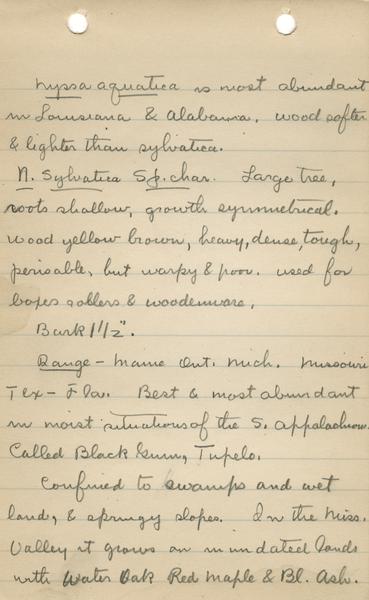 Nyssa aquatica is most abundant
in Louisiana & Alabama, wood softer
& lighter than sylvatica.
N. Sylvatica Sp. char. Large tree,
roots shallow, growth symmetrical.
wood yellow brown, heavy, dense, tough,
perisable, but warpy & poor. used for
boxes rollers & woodenware.
Bark 1 1/2".
Range - Maine Ont. Mich. Missouri
Tex - Fla. Best & most abundant
in moist situations of the S. Appalachian.
Called Black Gum, Tupelo.
Confined to swamps and wet
land, & springy slopes. In the Miss.
Valley it grows on inundated lands
with Water Oak Red Maple & Bl. Ash.